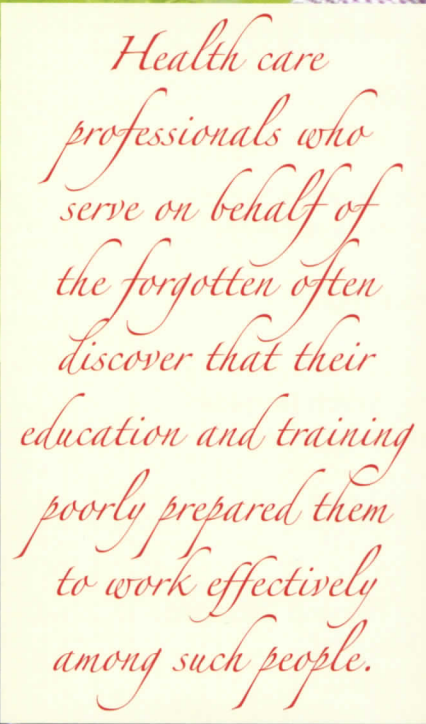 Health care
professionals who
serve on behalf of
the forgotten often
discover that their
education and training
poorly prepared them
to work effectively
among such people.